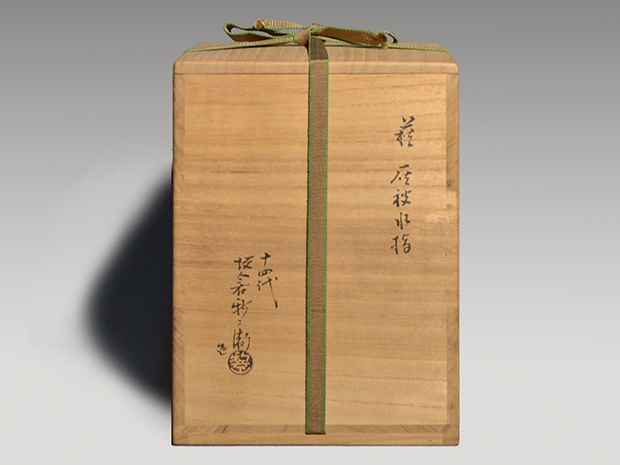 萩 灰被水指
十四代
坂倉新兵衛
造